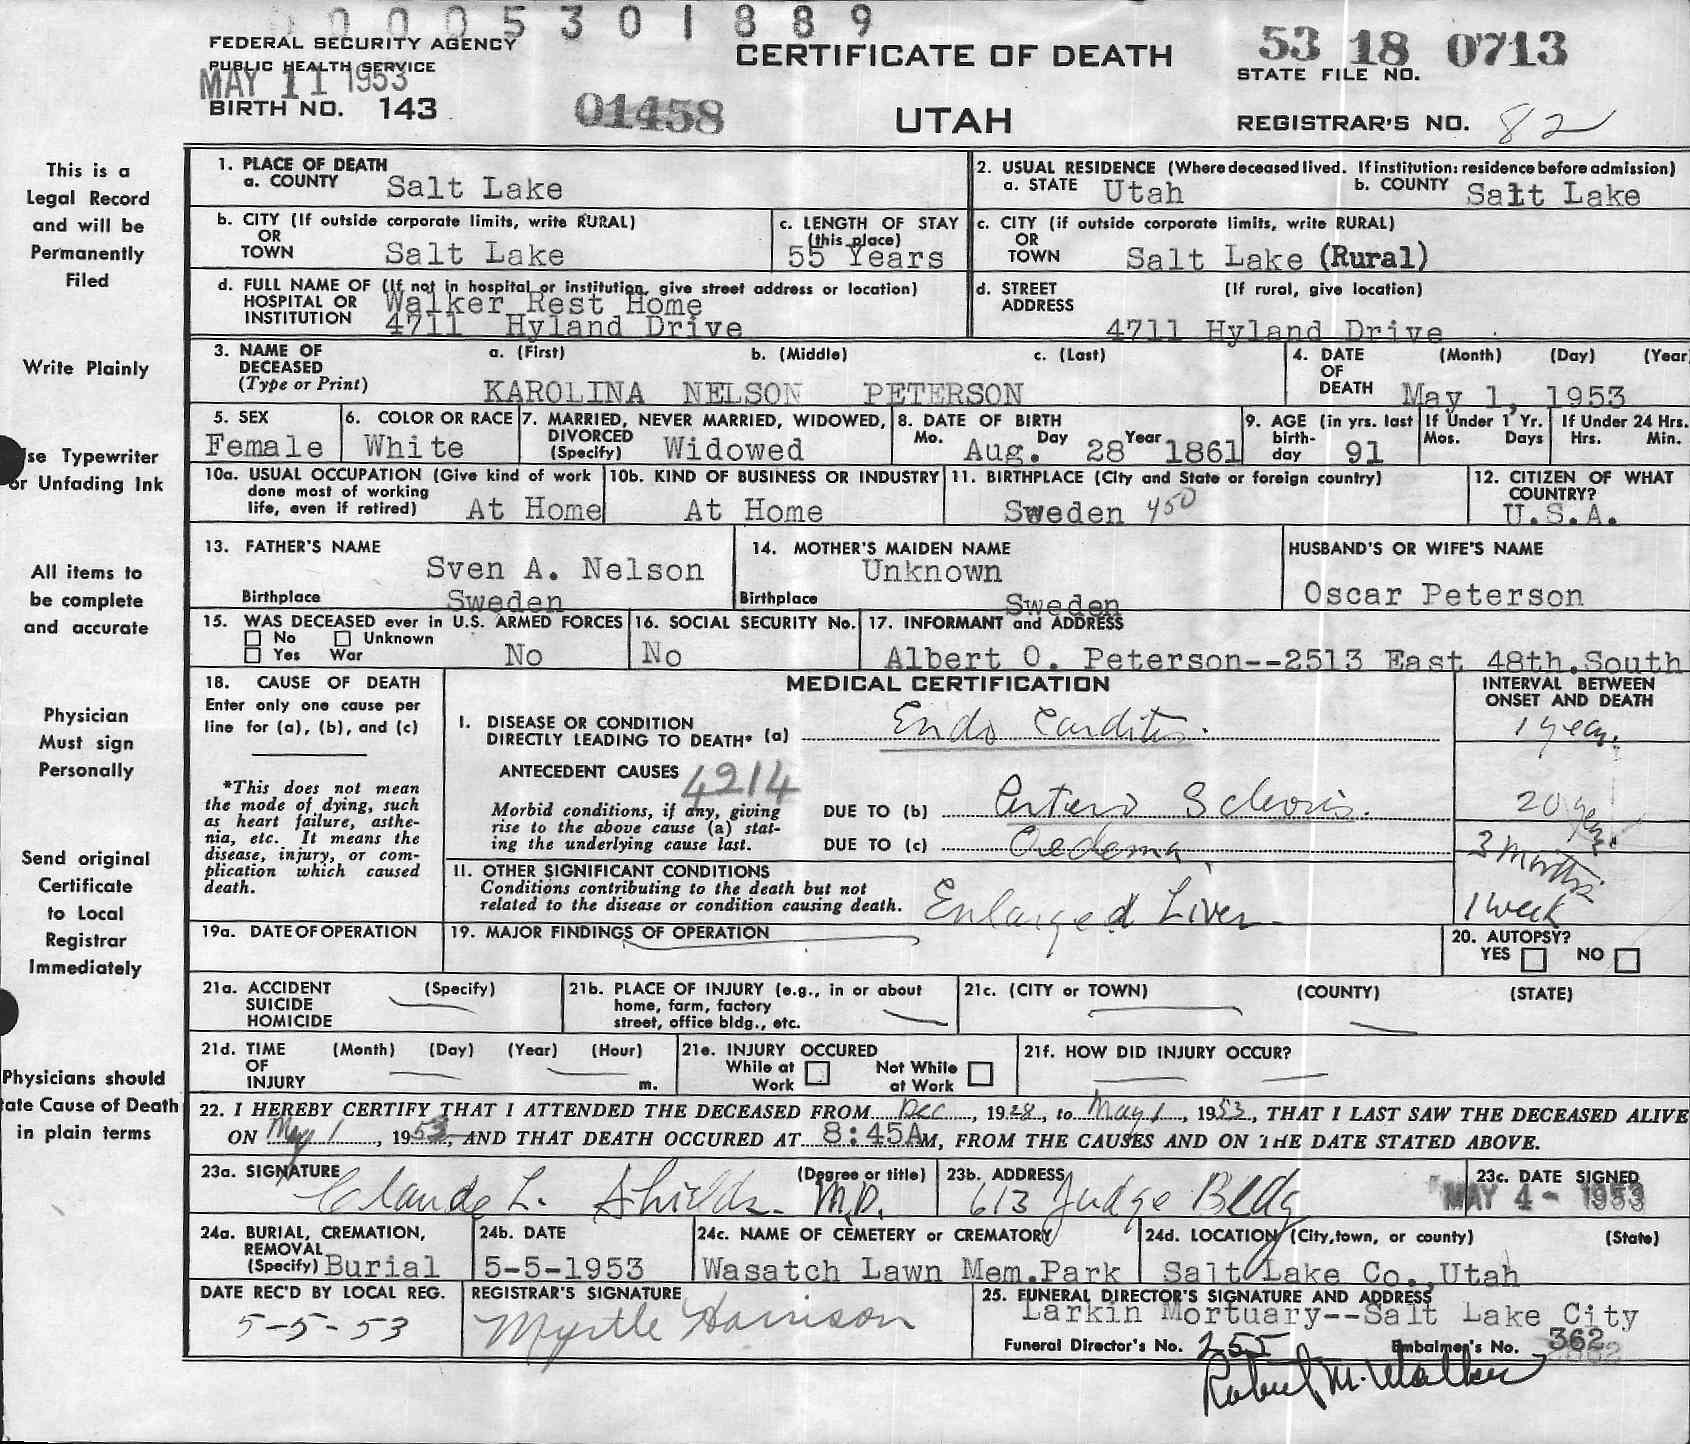 0005301889
FEDERAL SECURITY AGENCY
PUBLIC HEALTH SERVICE
MAY 11 1953
BIRTH NO. 143
01458
CERTIFICATE OF DEATH
UTAH
53 18 0713
STATE FILE NO.
REGISTRAR'S NO. 82
This is a
Legal Record
and will be
Permanently
Filed
Write Plainly
se Typewriter
or Unfading Ink
All items to
be complete
and accurate
Physician
Must sign
Personally
Send original
Certificate
to Local
Registrar
Immediately
Physicians should
tate Cause of Death
in plain terms
1. PLACE OF DEATH
a. COUNTY Salt Lake
2. USUAL RESIDENCE (Where deceased lived. If institution: residence before admission)
a. STATE Utah b. COUNTY Salt Lake
b. CITY (If outside corporate limits, write RURAL)
OR
TOWN Salt Lake
c. LENGTH OF STAY
(this place)
55 Years
c. CITY (if outside corporate limits, write RURAL)
OR
TOWN Salt Lake (Rural)
d. FULL NAME OF (If not in hospital or institution, give street address or location)
HOSPITAL OR Walker Rest Home
INSTITUTION 4711 Hyland Drive
d. STREET (If rural, give location)
ADDRESS
4711 Hyland Drive
3. NAME OF a. (First) b. (Middle) c. (Last)
DECEASED
(Type or Print) KAROLINA NELSON PETERSON
4. DATE (Month) (Day) (Year
OF
DEATH May 1, 1953
5. SEX
Female
6. COLOR OR RACE
White
7. MARRIED, NEVER MARRIED, WIDOWED,
DIVORCED
(Specify) Widowed
8. DATE OF BIRTH
Mo. Day Year
Aug. 28 1861
9. AGE (in yrs. last
birth-
day 91
If Under 1 Yr.
Mos. Days
If Under 24 Hrs.
Hrs. Min.
10a. USUAL OCCUPATION (Give kind of work
done most of working
life, even if retired) At Home
10b. KIND OF BUSINESS OR INDUSTRY
At Home
11. BIRTHPLACE (City and State or foreign country)
Sweden 450
12. CITIZEN OF WHAT
COUNTRY?
U.S.A.
13. FATHER'S NAME
Sven A. Nelson
Birthplace Sweden
14. MOTHER'S MAIDEN NAME
Unknown
Birthplace Sweden
HUSBAND'S OR WIFE'S NAME
Oscar Peterson
15. WAS DECEASED ever in U.S. ARMED FORCES
No Unknown
Yes War No
16. SOCIAL SECURITY No.
No
17. INFORMANT and ADDRESS
Albert O. Peterson--2513 East 48th.South
18. CAUSE OF DEATH
Enter only one cause per
line for (a), (b), and (c)
*This does not mean
the mode of dying, such
as heart failure, asthe-
nia, etc. It means the
disease, injury, or com-
plication which caused
death.
MEDICAL CERTIFICATION
INTERVAL BETWEEN
ONSET AND DEATH
I. DISEASE OR CONDITION
DIRECTLY LEADING TO DEATH* (a) Endo Carditis. 1 year.
ANTECEDENT CAUSES 4214
Morbid conditions, if any, giving
rise to the above cause (a) stat-
ing the underlying cause last.
DUE TO (b) Arterio Sclerosis. 20 years
DUE TO (c) Oedema 3 months
II. OTHER SIGNIFICANT CONDITIONS
Conditions contributing to the death but not
related to the disease or condition causing death. Enlarged Liver 1 week
19a. DATE OF OPERATION
19. MAJOR FINDINGS OF OPERATION
20. AUTOPSY?
YES NO
21a. ACCIDENT (Specify)
SUICIDE
HOMICIDE
21b. PLACE OF INJURY (e.g., in or about
home, farm, factory
street, office bldg., etc.
21c. (CITY or TOWN) (COUNTY) (STATE)
21d. TIME (Month) (Day) (Year) (Hour)
OF
INJURY m.
21e. INJURY OCCURED
While at Work Not While at Work
21f. HOW DID INJURY OCCUR?
22. I HEREBY CERTIFY THAT I ATTENDED THE DECEASED FROM Dec, 1928, to May 1, 1953, THAT I LAST SAW THE DECEASED ALIVE
ON May 1, 1953, AND THAT DEATH OCCURED AT 8:45AM, FROM THE CAUSES AND ON THE DATE STATED ABOVE.
23a. SIGNATURE (Degree or title)
Claude L. Shields. M.D.
23b. ADDRESS
613 Judge Bldg
23c. DATE SIGNED
MAY 4 - 1953
24a. BURIAL, CREMATION,
REMOVAL
(Specify) Burial
24b. DATE
5-5-1953
24c. NAME OF CEMETERY or CREMATORY
Wasatch Lawn Mem.Park
24d. LOCATION (City, town, or county) (State)
Salt Lake Co., Utah
DATE REC'D BY LOCAL REG.
5-5-53
REGISTRAR'S SIGNATURE
Myrtle Harrison
25. FUNERAL DIRECTOR'S SIGNATURE AND ADDRESS
Larkin Mortuary--Salt Lake City
Funeral Director's No. 255 Embalmer's No. 362
Robert M. Walker